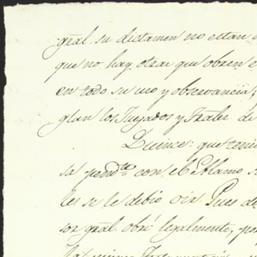 gral. su dictamen no estan
que no hay otras que obren e
en todo su uso y observancia;
glan los Juzgados y Trales de
Quince: que tenien
sa pendte con el Alamo s
les se le debió oir Pues de
sor gral obró legalmente, po